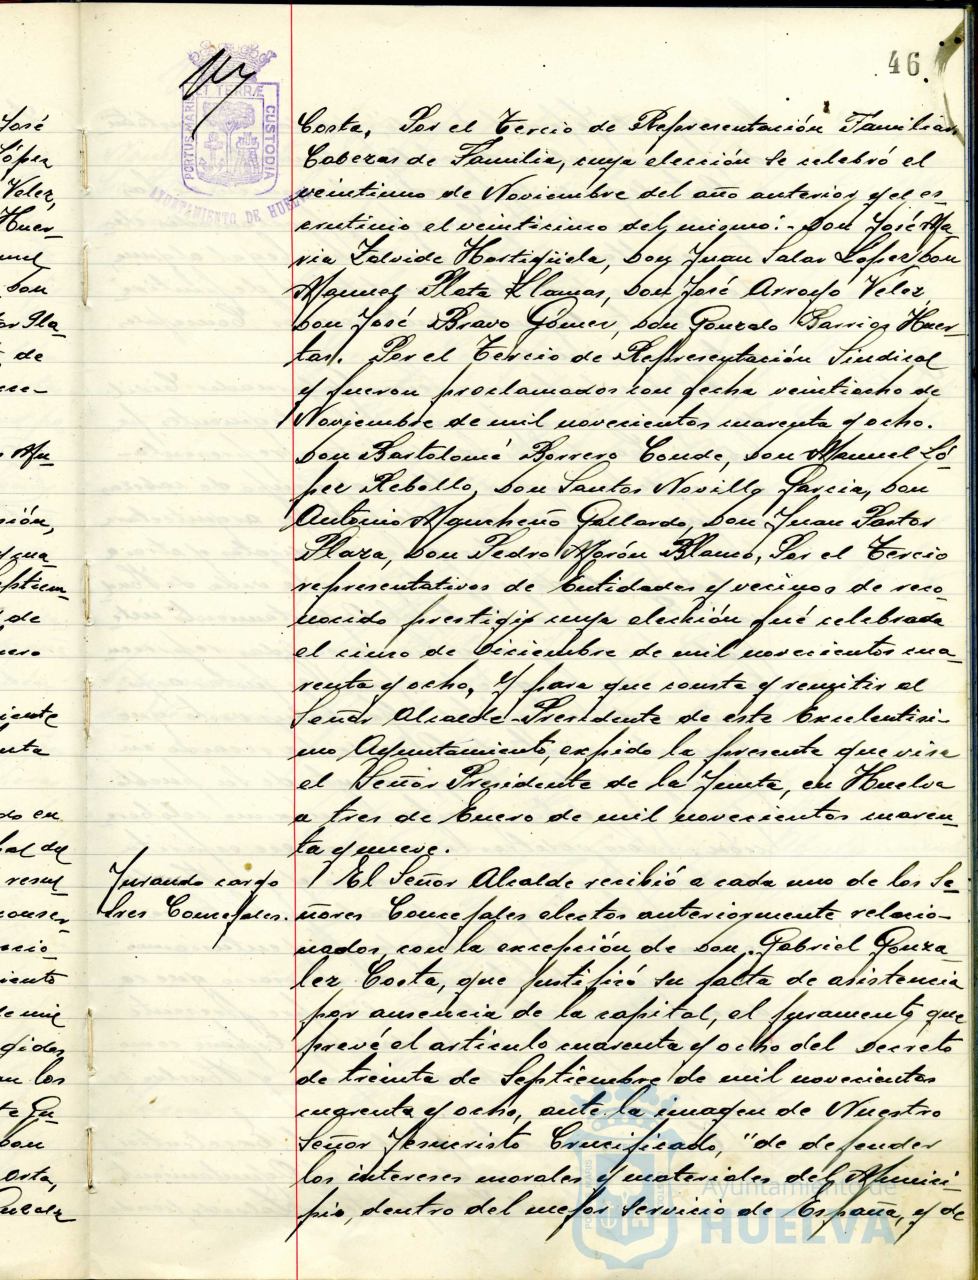 46.
PORTUS MARIS ET TERRÆ CUSTODIA
AYUNTAMIENTO DE HUELVA
Costa, Por el Tercio de Representación Familiar
Cabezas de Familia, cuya elección se celebró el
veintiuno de Noviembre del año anterior y el es-
crutinio el veinticinco del mismo:- Don José Ma-
ria Zalvide Hortigüela, Don Juan Salas López Don
Manuel Plata Llamas, Don José Arroyo Vélez
Don José Bravo Gómez, Don Gonzalo Barrios Huer-
tas. Por el Tercio de Representación Sindical
y fueron proclamados con fecha veintiocho de
Noviembre de mil novecientos cuarenta y ocho.
Don Bartolomé Borrero Conde, Don Manuel Ló-
pez Rebollo, Don Santos Novillo Garcia, Don
Antonio Gallardo, Don Juan Pastor
Plaza, Don Pedro Morón Blanco, Por el Tercio
representativos de Entidades y vecinos de reco-
nocido prestigio cuya elección fué celebrada
el cinco de Diciembre de mil novecientos cua-
renta y ocho, Y para que conste y remitir al
Señor Alcalde-Presidente de este Excelentisi-
mo Ayuntamiento, expido la presente que visa
el Señor Presidente de la Junta, en Huelva
a tres de Enero de mil novecientos cuaren-
ta y nueve.
Jurando cargo
tres Concejales.
El Señor Alcalde recibió a cada uno de los Se-
ñores Concejales electos anteriormente relacio-
nados, con la excepción de Don Gabriel Gonza-
lez Costa, que justificó su falta de asistencia
por ausencia de la capital, el juramento que
prevé el articulo cuarenta y ocho del Decreto
de treinta de Septiembre de mil novecientos
cuarenta y ocho, ante la imagen de Nuestro
Señor Jesucristo Crucificado, "de defender
los intereses morales y materiales del Munici-
pio, dentro del mejor servicio de España, y de
Ayuntamiento de
HUELVA
José
López
Velez,
Huer-
Don
de
sión,
de
do en
los
Don